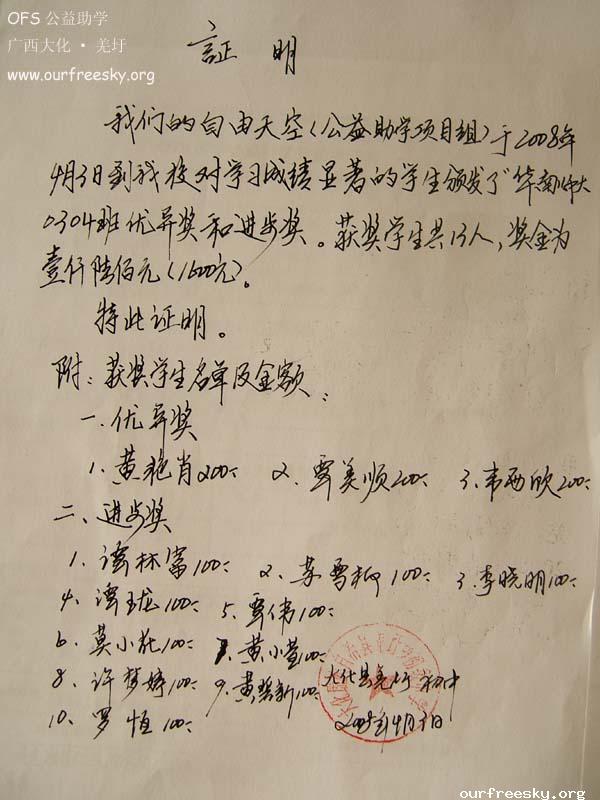 OFS 公益助学
广西大化 · 羌圩
www.ourfreesky.org
証 明
我们的自由天空(公益助学项目组)于2008年
4月3日到我校对学习成绩显著的学生颁发了“华南师大
0304班优异奖和进步奖。获奖学生共13人,奖金为
壹仟陆佰元(1600元)。
特此证明。
附:获奖学生名单及金额:
一.优异奖
1.黄艳肖200: 2.覃美顺200: 3.韦西欣200:
二、进步奖
1.谭林富100: 2.苏雪柳100: 3.李晓明100:
4.谭珑100: 5.覃伟100:
6.莫小花100: 7.黄小萱100:
8.许梦婷100: 9.黄碧新100:
10.罗恒100:
大化县羌圩初中
2008年4月3日
ourfreesky.org